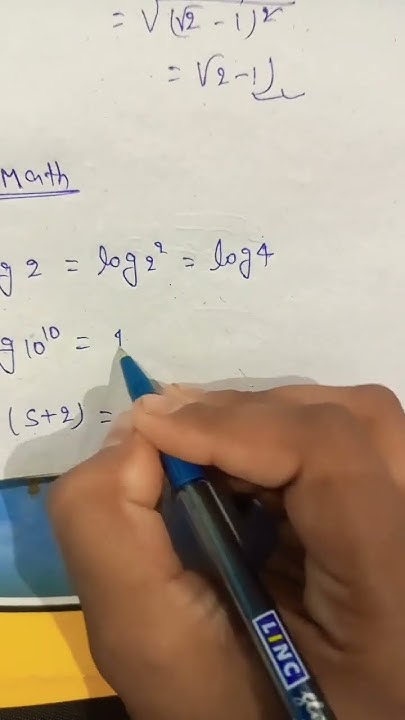 = √(√2 - 1)²
= √2 - 1
Math
g 2 = log 2² = log 4
g 10¹⁰ = 1
(5+2) =
LINC